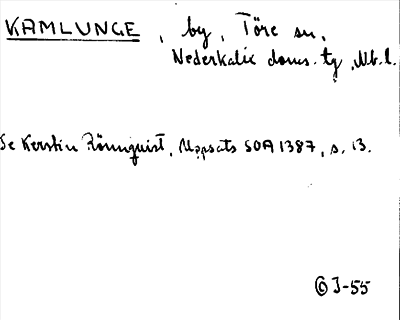 KAMLUNGE, by, Töre sn,
Nederkalix doms. tg, Nb. l.
Se Kerstin Rönnquist, Uppsats SOA 1387, s. 13.
© I-55